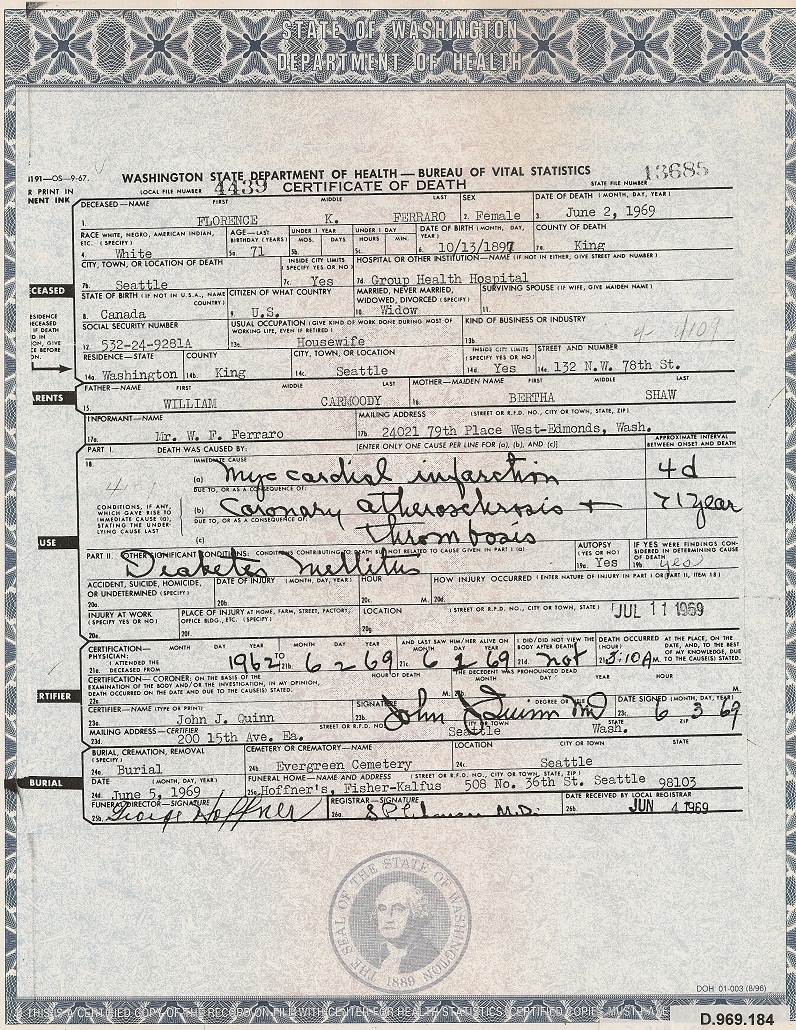 STATE OF WASHINGTON
DEPARTMENT OF HEALTH
WASHINGTON STATE DEPARTMENT OF HEALTH — BUREAU OF VITAL STATISTICS
LOCAL FILE NUMBER 4439 CERTIFICATE OF DEATH STATE FILE NUMBER 13685
J191—OS—9-67.
R PRINT IN
NENT INK
DECEASED—NAME FIRST MIDDLE LAST SEX DATE OF DEATH (MONTH, DAY, YEAR)
1. FLORENCE K. FERRARO 2. Female 3. June 2, 1969
RACE WHITE, NEGRO, AMERICAN INDIAN, ETC. (SPECIFY) AGE—LAST BIRTHDAY (YEARS) UNDER 1 YEAR MOS. DAYS UNDER 1 DAY HOURS MIN. DATE OF BIRTH (MONTH, DAY, YEAR) COUNTY OF DEATH
4. White 5a. 71 5b. 5c. 6. 10/13/1897 7a. King
CITY, TOWN, OR LOCATION OF DEATH INSIDE CITY LIMITS (SPECIFY YES OR NO) HOSPITAL OR OTHER INSTITUTION—NAME (IF NOT IN EITHER, GIVE STREET AND NUMBER)
7b. Seattle 7c. Yes 7d. Group Health Hospital
CEASED
STATE OF BIRTH (IF NOT IN U.S.A., NAME COUNTRY) CITIZEN OF WHAT COUNTRY MARRIED, NEVER MARRIED, WIDOWED, DIVORCED (SPECIFY) SURVIVING SPOUSE (IF WIFE, GIVE MAIDEN NAME)
8. Canada 9. U.S. 10. Widow 11.
SOCIAL SECURITY NUMBER USUAL OCCUPATION (GIVE KIND OF WORK DONE DURING MOST OF WORKING LIFE, EVEN IF RETIRED) KIND OF BUSINESS OR INDUSTRY
12. 532-24-9281A 13a. Housewife 13b.
RESIDENCE—STATE COUNTY CITY, TOWN, OR LOCATION INSIDE CITY LIMITS (SPECIFY YES OR NO) STREET AND NUMBER
14a. Washington 14b. King 14c. Seattle 14d. Yes 14e. 132 N.W. 78th St.
RENTS
FATHER—NAME FIRST MIDDLE LAST MOTHER—MAIDEN NAME FIRST MIDDLE LAST
15. WILLIAM CARMOODY 16. BERTHA SHAW
INFORMANT—NAME MAILING ADDRESS (STREET OR R.F.D. NO., CITY OR TOWN, STATE, ZIP)
17a. Mr. W. F. Ferraro 17b. 24021 79th Place West-Edmonds, Wash.
PART I. DEATH WAS CAUSED BY: [ENTER ONLY ONE CAUSE PER LINE FOR (a), (b), AND (c)] APPROXIMATE INTERVAL BETWEEN ONSET AND DEATH
18. IMMEDIATE CAUSE
(a) Myocardial infarction 4 d
DUE TO, OR AS A CONSEQUENCE OF:
CONDITIONS, IF ANY, WHICH GAVE RISE TO IMMEDIATE CAUSE (a), STATING THE UNDERLYING CAUSE LAST
(b) Coronary atherosclerosis + >1 year
DUE TO, OR AS A CONSEQUENCE OF:
(c) thrombosis
USE
PART II. OTHER SIGNIFICANT CONDITIONS: CONDITIONS CONTRIBUTING TO DEATH BUT NOT RELATED TO CAUSE GIVEN IN PART I (a) AUTOPSY (YES OR NO) IF YES WERE FINDINGS CONSIDERED IN DETERMINING CAUSE OF DEATH
Diabetes mellitus 19a. Yes 19b. yes
ACCIDENT, SUICIDE, HOMICIDE, OR UNDETERMINED (SPECIFY) DATE OF INJURY (MONTH, DAY, YEAR) HOUR HOW INJURY OCCURRED (ENTER NATURE OF INJURY IN PART I OR PART II, ITEM 18)
20a. 20b. 20c. M. 20d.
INJURY AT WORK (SPECIFY YES OR NO) PLACE OF INJURY AT HOME, FARM, STREET, FACTORY, OFFICE BLDG., ETC. (SPECIFY) LOCATION (STREET OR R.F.D. NO., CITY OR TOWN, STATE)
20e. 20f. 20g. JUL 11 1969
CERTIFICATION—PHYSICIAN: I ATTENDED THE DECEASED FROM MONTH DAY YEAR TO MONTH DAY YEAR AND LAST SAW HIM/HER ALIVE ON MONTH DAY YEAR I DID/DID NOT VIEW THE BODY AFTER DEATH DEATH OCCURRED (HOUR) AT THE PLACE, ON THE DATE, AND, TO THE BEST OF MY KNOWLEDGE, DUE TO THE CAUSE(S) STATED.
21a. 1962 21b. 6 2 69 21c. 6 2 69 21d. not 21e. 3:10 A M.
CERTIFICATION—CORONER: ON THE BASIS OF THE EXAMINATION OF THE BODY AND/OR THE INVESTIGATION, IN MY OPINION, DEATH OCCURRED ON THE DATE AND DUE TO THE CAUSE(S) STATED. HOUR OF DEATH THE DECEDENT WAS PRONOUNCED DEAD MONTH DAY YEAR HOUR
22a. M. 22b. M.
RTIFIER
CERTIFIER—NAME (TYPE OR PRINT) SIGNATURE DEGREE OR TITLE DATE SIGNED (MONTH, DAY, YEAR)
23a. John J. Quinn 23b. John J Quinn MD 23c. 6 3 69
MAILING ADDRESS—CERTIFIER STREET OR R.F.D. NO. CITY OR TOWN STATE ZIP
23d. 200 15th Ave. Ea. Seattle Wash.
BURIAL, CREMATION, REMOVAL (SPECIFY) CEMETERY OR CREMATORY—NAME LOCATION CITY OR TOWN STATE
24a. Burial 24b. Evergreen Cemetery 24c. Seattle
BURIAL
DATE (MONTH, DAY, YEAR) FUNERAL HOME—NAME AND ADDRESS (STREET OR R.F.D. NO., CITY OR TOWN, STATE, ZIP)
24d. June 5, 1969 25a. Hoffner's, Fisher-Kalfus 508 No. 36th St. Seattle 98103
FUNERAL DIRECTOR—SIGNATURE REGISTRAR—SIGNATURE DATE RECEIVED BY LOCAL REGISTRAR
25b. George Hoffner 26a. M.D. 26b. JUN 4 1969
THE SEAL OF THE STATE OF WASHINGTON
1889
DOH 01-003 (8/96)
THIS IS A CERTIFIED COPY OF THE RECORD ON FILE WITH CENTER FOR HEALTH STATISTICS. CERTIFIED COPIES MUST HAVE
D.969.184